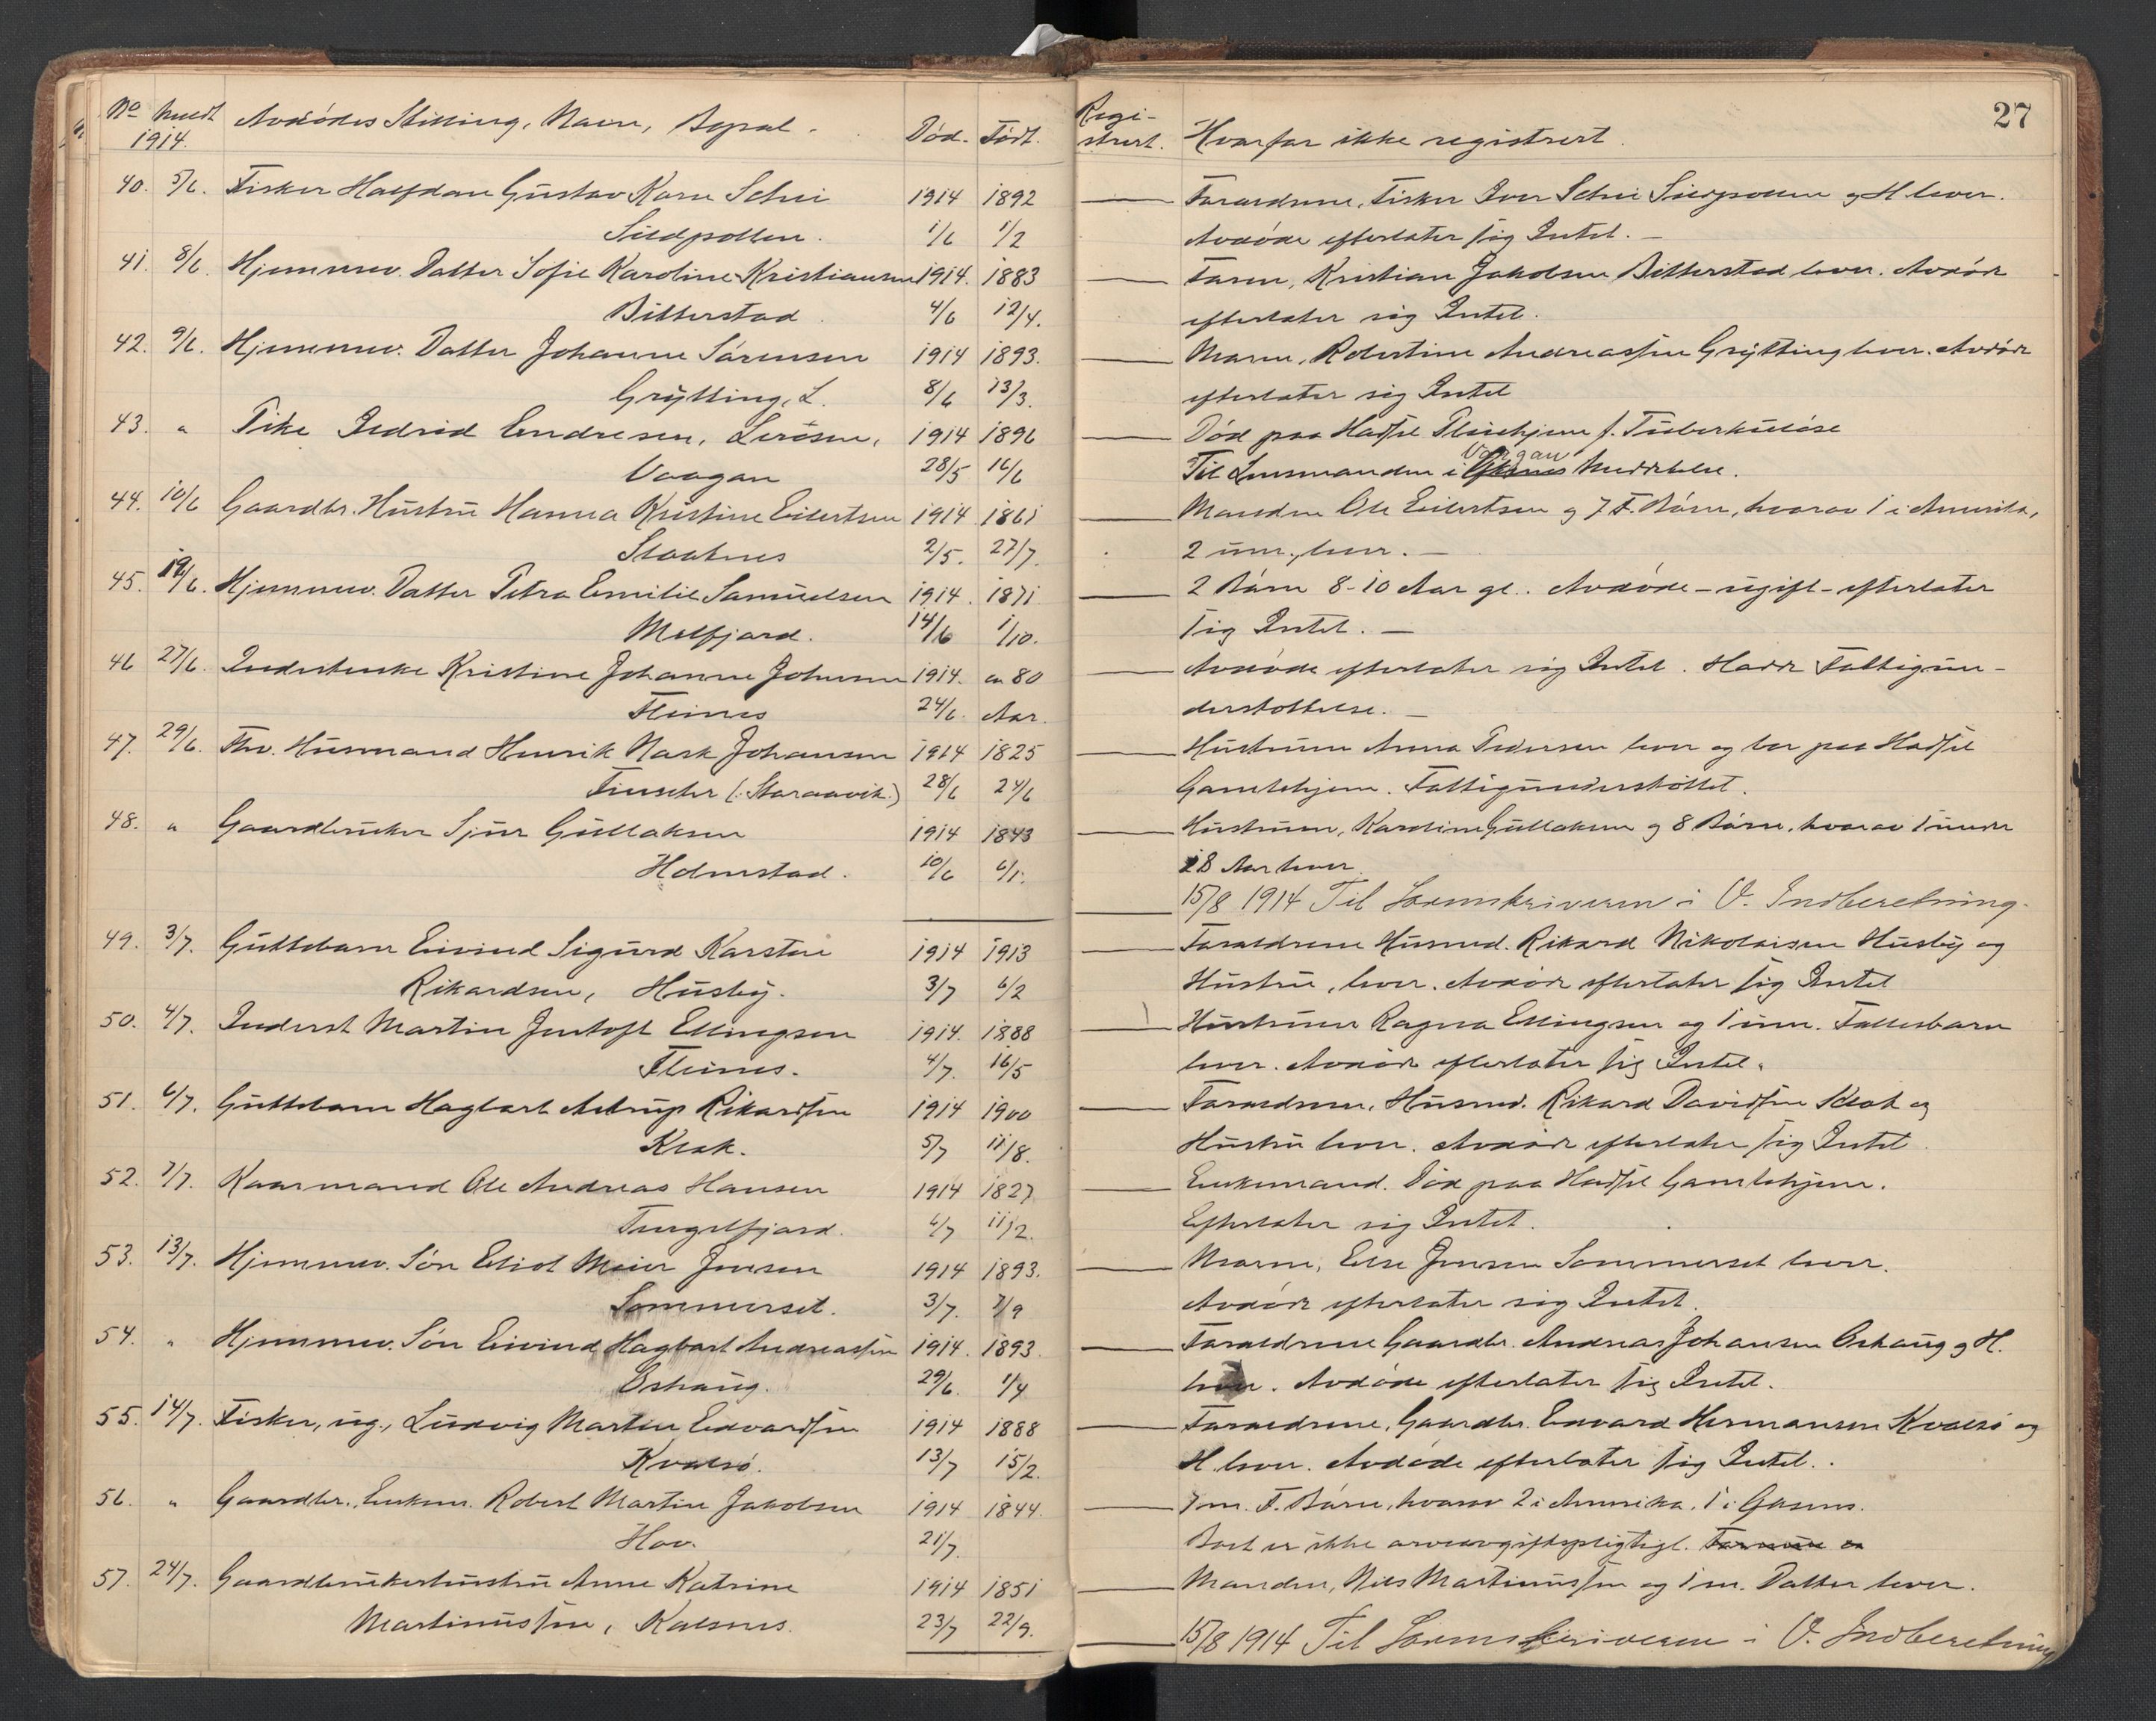 27
No Meldt Avdødes Stilling, Navn, Bopæl. Død. Født. Regi- Hvorfor ikke registrert
1914. strert.
40. 5/6. Fisker Halfdan Gustav Schei 1914 1892 Foreldrene, Fisker Iver Schei Sildpollen og H. lever.
Sildpollen. 1/6 1/2 Avdøde efterlater sig Intet.
41. 8/6 Hjemmev. Datter Sofie Karoline Kristiansen 1914. 1883 Faren, Kristian Jakobsen Bitterstad lever. Avdøde
Bitterstad. 4/6 12/4. efterlater sig Intet.
42. 9/6. Hjemmev. Datter Johanne Sørensen 1914 1893. Moren, Robertine Andreassen Grytting lever. Avdøde
Grytting, L. 8/6 13/3. efterlater sig Intet
43. " Pike Endresen, 1914 1896 Død paa Hadsel Pleiehjem f. Tuberkuløse
Vaagan 28/5 16/6 Til Lensmanden i Vaagan Meddelelse.
44. 10/6 Gaardbr. Hustru Hanna Kristine Eilertsen 1914. 1861 Manden Ole Eilertsen og 7 F. Børn, hvorav 1 i Amerika,
Slaatnes 2/5. 27/7. 2 um., lever.
45. 19/6. Hjemmev. Datter Petra Emilie Samuelsen 1914. 1871 2 Børn 8-10 Aar gl. Avdøde - ugift - efterlater
Melfjord. 14/6 1/10. sig Intet.
46 27/6. Inderstenke Kristine Johanne Johnsen 1914. ca 80 Avdøde efterlater sig Intet. Hadde Fattigun-
Fleines 24/6. Aar. derstøttelse.
47. 29/6. Fhv. Husmand Henrik Johansen 1914 1825 Hustruen Anna Pedersen lever og bor paa Hadsel
28/6 24/6 Gamlehjem. Fattigunderstøttet.
48. " Gaardbruker Sjur Gullaksen 1914 1843 Hustruen, Karoline Gullaksen og 8 Børn, hvorav 1 under
Holmstad. 10/6 6/1. 18 Aar lever
15/8 1914 Til Sorenskriveren i V. Indberetning.
49. 3/7. Guttebarn Eivind Sigurd Karsten 1914 1913 Foreldrene Husmd. Rikard Nikolaisen Husby og
Rikardsen, Husby. 3/7 6/2 Hustru, lever. Avdøde efterlater sig Intet
50. 4/7. Inderst Martin Jentoft Ellingsen 1914. 1888 Hustruen Ragna Ellingsen og 1 um. Fellesbarn
Fleines. 4/7. 16/5 lever. Avdøde efterlater sig Intet.
51. 6/7. Guttebarn Hagbart Astrup Rikardsen 1914 1900 Foreldrene, Husmd. Rikard Davidsen Klak og
Klak. 5/7 11/8. Hustru lever. Avdøde efterlater sig Intet
52. 7/7. Kaarmand Ole Andreas Hansen 1914 1827 Enkemand. Død paa Hadsel Gamlehjem.
Tengelfjord. 6/7 11/2. Efterlater sig Intet.
53. 13/7. Hjemmev. Søn Eliot Meier Jensen 1914 1893. Moren, Else Jensen Sommerset lever.
Sommerset. 3/7. 7/9 Avdøde efterlater sig Intet.
54. " Hjemmev. Søn Eivind Hagbart Andreassen 1914. 1893. Foreldrene Gaardbr. Andreas Johansen Oshaug og H.
Oshaug. 29/6. 1/4 lever. Avdøde efterlater sig Intet.
55. 14/7. Fisker, ug., Ludvig Martin Edvardsen 1914 1888 Foreldrene, Gaardbr. Edvard Hermansen Kvalsø og
Kvalsø. 13/7 15/2. H. lever. Avdøde efterlater sig Intet.
56. " Gaardbr., Enkem. Robert Martin Jakobsen 1914 1844. 7 m. F. Børn, hvorav 2 i Amerika, 1 i
Hov. 21/7. Boet er ikke arveavgiftspligtigt.
57. 24/7. Gaardbrukerhustru Anne Katrine 1914 1851 Manden, Nils Martinussen og 1 m. Datter lever.
Martinussen, Kalsnes. 23/7 22/9. 15/8 1914 Til Sorenskriveren i V. Indberetning